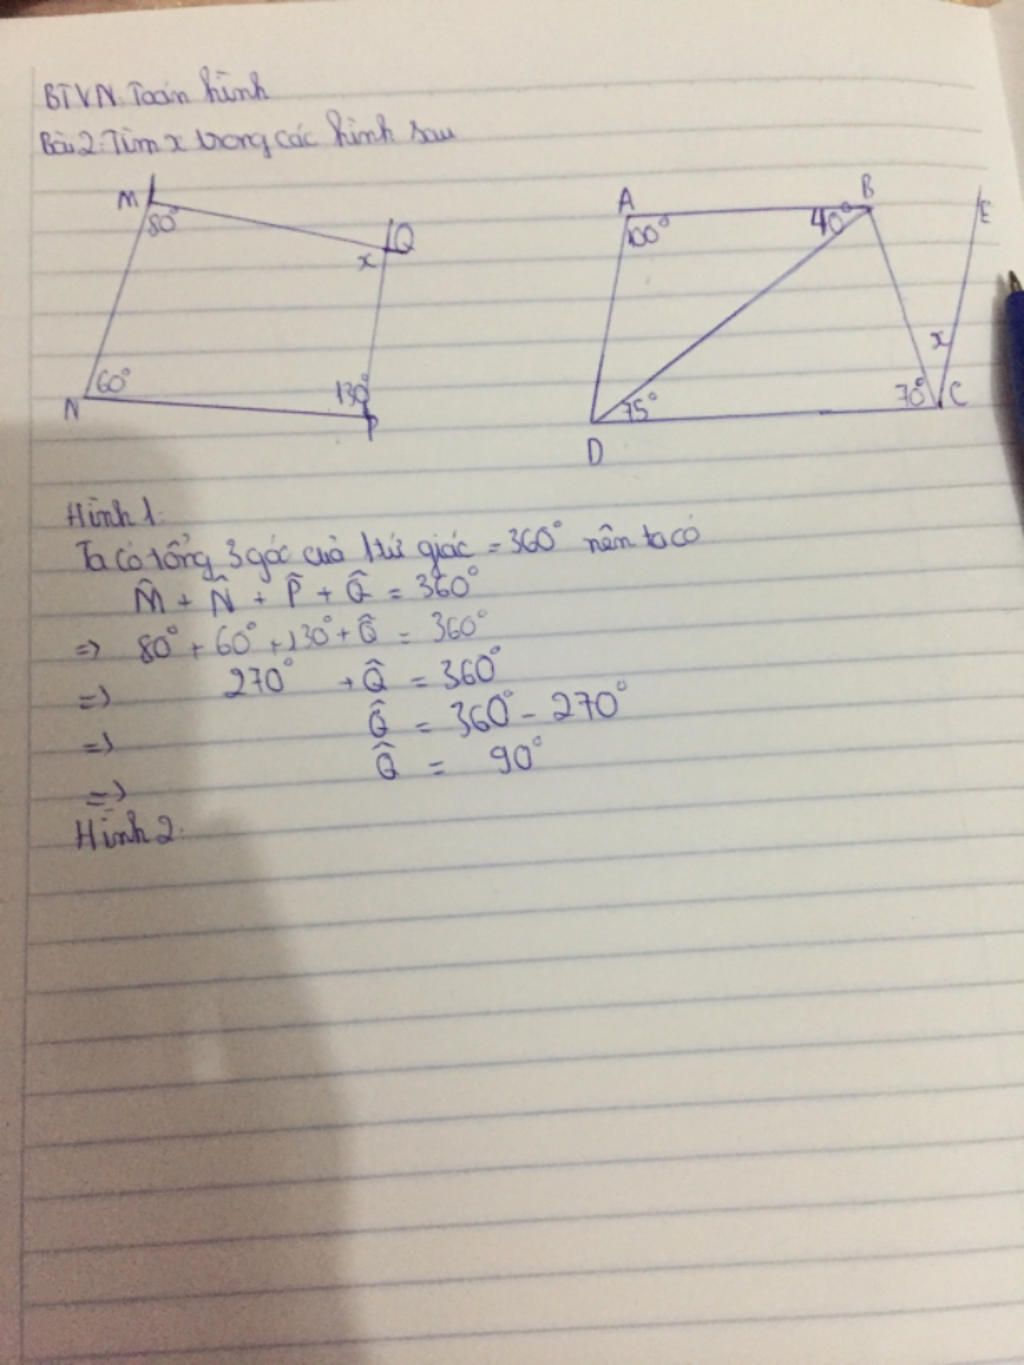 BTVN: Toán hình
Bài 2: Tìm x trong các hình sau
M
80°
Q
x
60°
N
130°
P
A
100°
B
40°
E
x
D
75°
70°
C
Hình 1:
Ta có tổng 3 góc của 1 tứ giác = 360° nên ta có
M̂ + N̂ + P̂ + Q̂ = 360°
=> 80° + 60° + 130° + Q̂ = 360°
=> 270° + Q̂ = 360°
=> Q̂ = 360° - 270°
=> Q̂ = 90°
Hình 2: